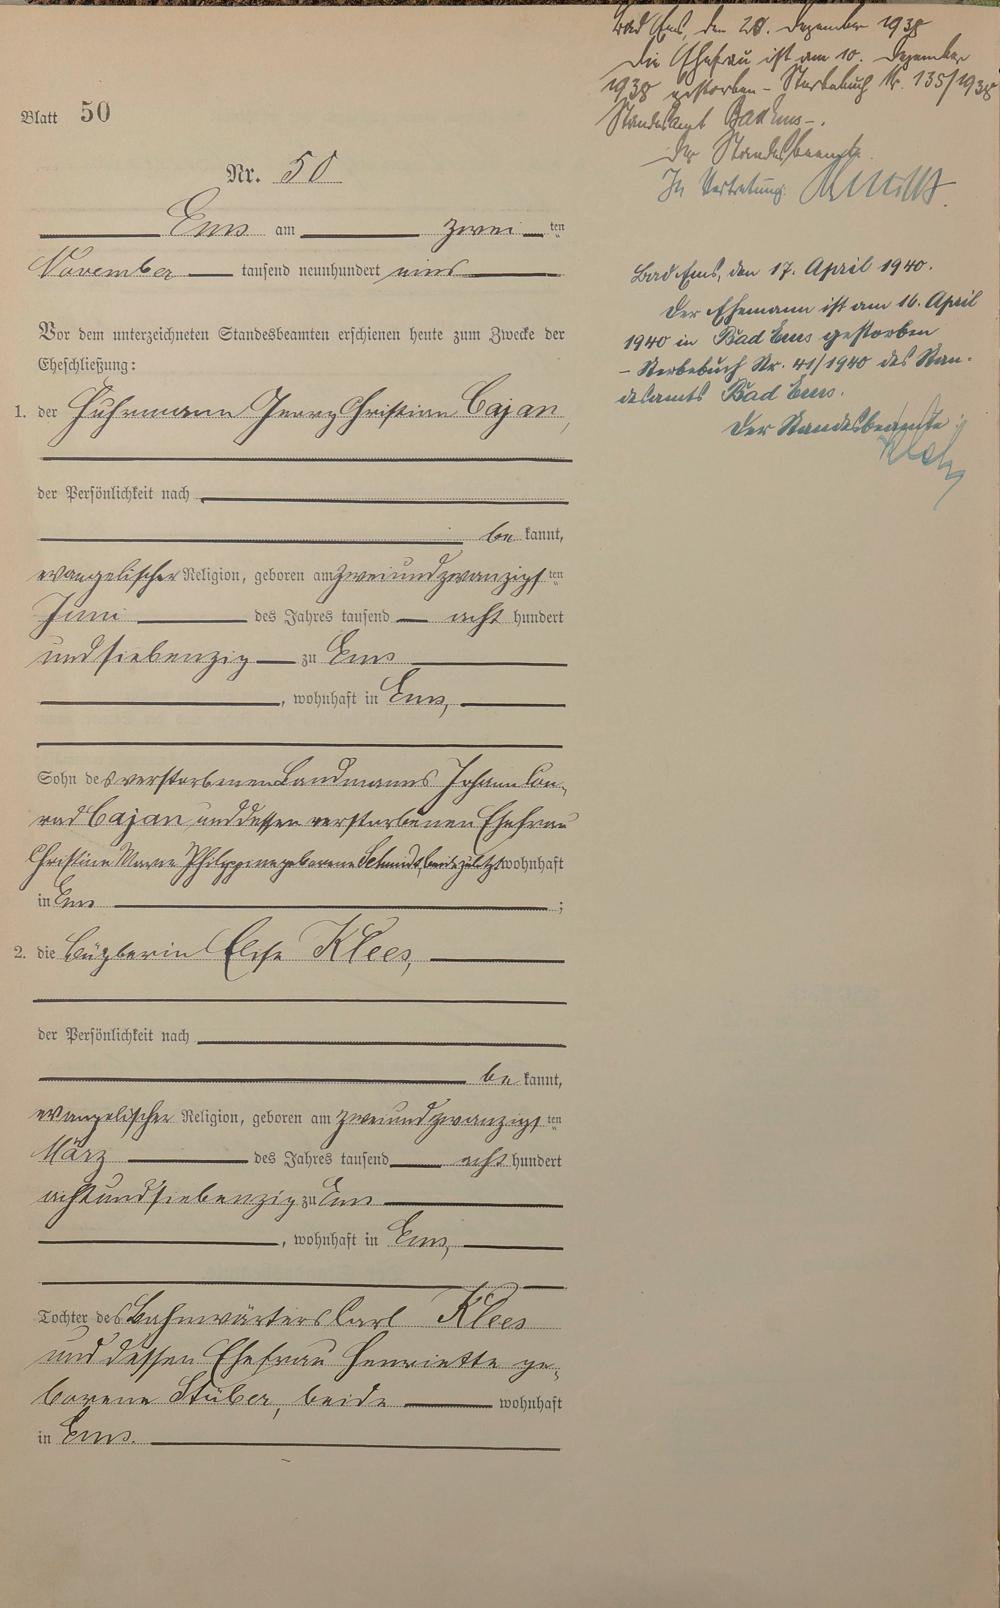 Blatt 50
Nr. 50
Ems am zwei ten
November tausend neunhundert eins
Vor dem unterzeichneten Standesbeamten erschienen heute zum Zwecke der
Eheschließung:
1. der Fuhrmann Georg Christian Cajan,
der Persönlichkeit nach
be kannt,
evangelischer Religion, geboren am zweiundzwanzigs ten
Juni des Jahres tausend acht hundert
und siebenzig zu Ems
, wohnhaft in Ems,
Sohn des verstorbenen Landmanns Johann Con-
rad Cajan und dessen verstorbenen Ehefrau
Christine Philippine geborene Schmidt, beide zuletzt wohnhaft
in Ems ;
2. die Büglerin Elise Klees,
der Persönlichkeit nach
be kannt,
evangelischer Religion, geboren am zweiundzwanzigs ten
März des Jahres tausend acht hundert
achtundsiebenzig zu Ems
, wohnhaft in Ems,
Tochter des Bahnwärters Carl Klees
und dessen Ehefrau Henriette ge-
borene Stüber, beide wohnhaft
in Ems.
Bad Ems, den 28. Dezember 1938
Die Ehefrau ist am 10. Dezember
1938 gestorben - Sterbebuch Nr. 135/1938
Standesamt Bad Ems -.
Der Standesbeamte.
In Vertretung:
Bad Ems, den 17. April 1940.
Der Ehemann ist am 16. April
1940 in Bad Ems gestorben
- Sterbebuch Nr. 41/1940 des Stan-
desamts Bad Ems.
Der Standesbeamte